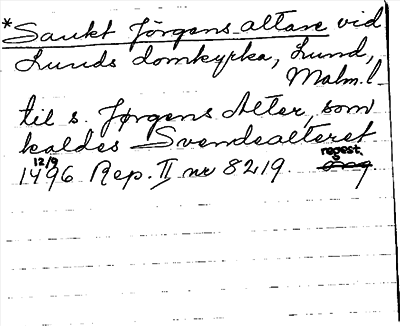 *Sankt Jörgens altare vid
Lunds domkyrka, Lund,
Malm. l.
til s. Jørgens Alter, som
kaldes Svendealteret
12/9
1496 Rep. II nr 8219. regest.